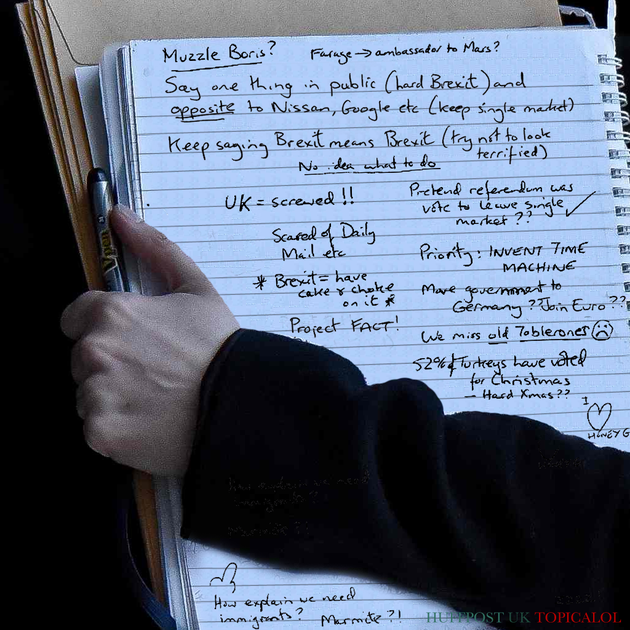 Muzzle Boris?
Farage → ambassador to Mars?
Say one thing in public (hard Brexit) and
opposite to Nissan, Google etc (keep single market)
Keep saying Brexit means Brexit (try not to look
terrified)
No idea what to do
UK = screwed!!
Scared of Daily
Mail etc
* Brexit = have
cake & choke
on it *
Project FACT!
Pretend referendum was
vote to leave single
market??
Priority: INVENT TIME
MACHINE
Move government to
Germany?? Join Euro??
We miss old Toblerones
52% of Turkeys have voted
for Christmas
— Hard Xmas??
I
HONEY G
Vpen
How explain we need
immigrants? Marmite?!
HUFFPOST UK TOPICALOL